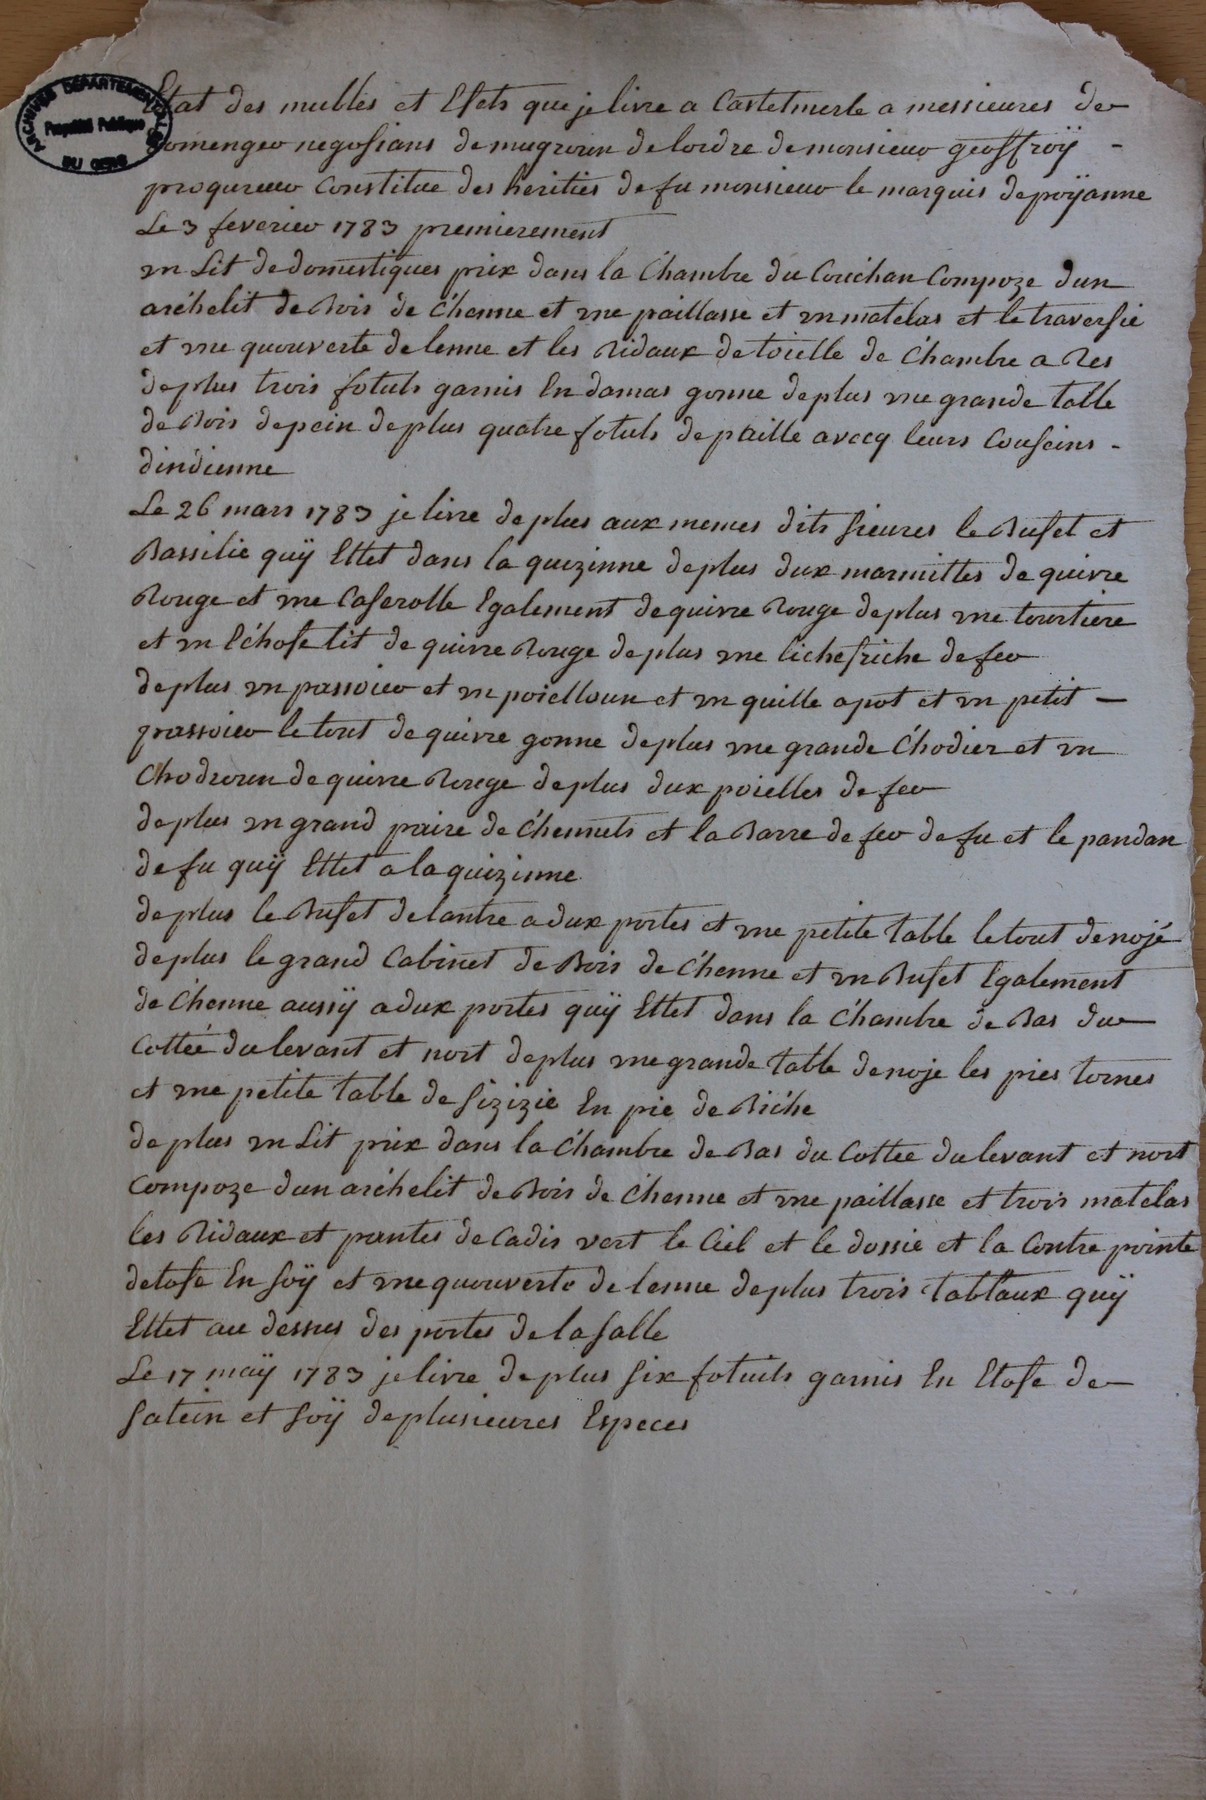 ARCHIVES DEPARTEMENTALES
Propriété Publique
DU GERS
Etat des mubles et Efets que je livre a Castelmerle a messieures de
omenger negosians de mugroun de lordre de monsieur geoffroÿ -
proqureur Constitue des herities de fu monsieur le marquis de poÿanne
Le 3 feverier 1783 premierement
un Lit de domestiques prix dans la Chambre du Couchan Compoze dun
archelit de Bois de Chenne et une paillasse et un matelas et le traversie
et une quouverte de lenne et les Ridaux de toielle de Chambre a Res
de plus trois fotuls garnis En damas gonne de plus une grande table
de Bois de pein de plus quatre fotuls de paille avecq leurs Couseins -
dindienne
Le 26 mars 1783 je livre de plus aux memes dits sieures le Bufet et
Bassilie quÿ Ettet dans la quizinne de plus dux marmittes de quivre
Rouge et une Caserolle Egalement de quivre Rouge de plus une tourtiere
et un Echofe lit de quivre Rouge de plus une lichefriche de fer
de plus un passoier et un poielloun et un quille a pot et un petit -
passoier le tout de quivre gonne de plus une grande Chodier et un
Chodroun de quivre Rouge de plus dux poielles de fer
de plus un grand paire de Chennets et la Barre de fer de fu et le pandan
de fu quÿ Ettet a la quizinne
de plus le Bufet de lantre a dux portes et une petite table le tout de nojé
de plus le grand Cabinet de Bois de Chenne et un Bufet Egalement
de Chenne aussÿ a dux portes quÿ Ettet dans la Chambre de Bas du
Cottée du levant et nort de plus une grande table de noje les pies tornes
et une petite table de sizizie En pie de Biche
de plus un Lit prix dans la Chambre de Bas du Cottee du levant et nort
Compoze dun archelit de Bois de Chenne et une paillasse et trois matelas
les Ridaux et pantes de Cadis vert le Ciel et le dossie et la Contre pointe
detofe En soÿ et une quouverte de lenne de plus trois tablaux quÿ
Ettet au dessus des portes de la salle
Le 17 maÿ 1783 je livre de plus six fotuils garnis En Etofe de
satein et soÿ de plusieures Especes